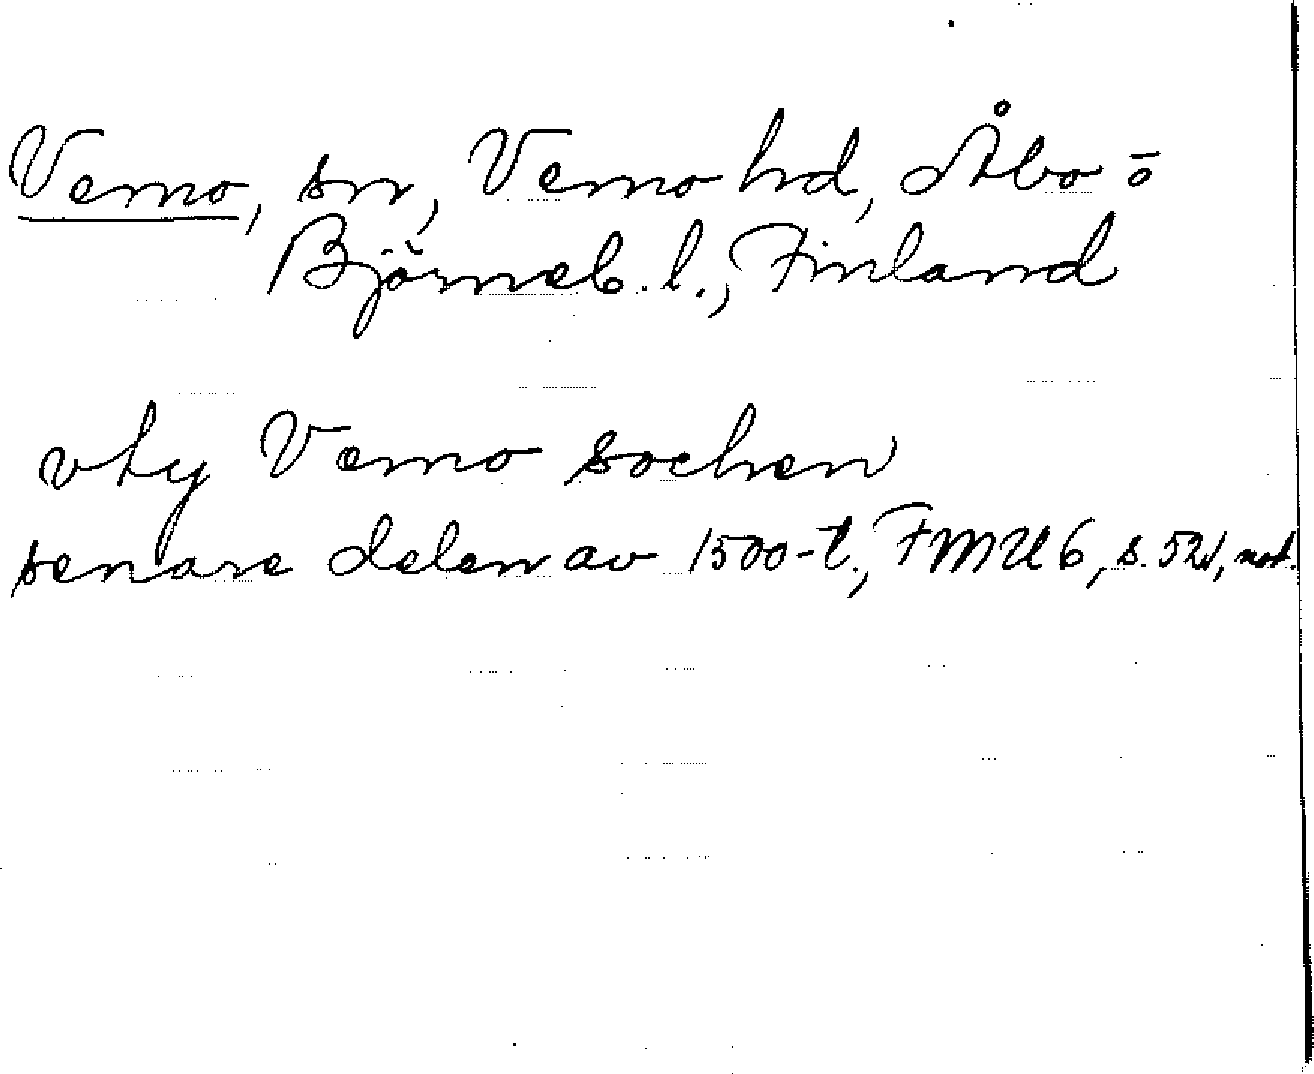 Vemo, sn, Vemo hd, Åbo o
Björneb. l., Finland
vty Vemo sochen
senare delen av 1500-t., FMU 6, s. 521, not.